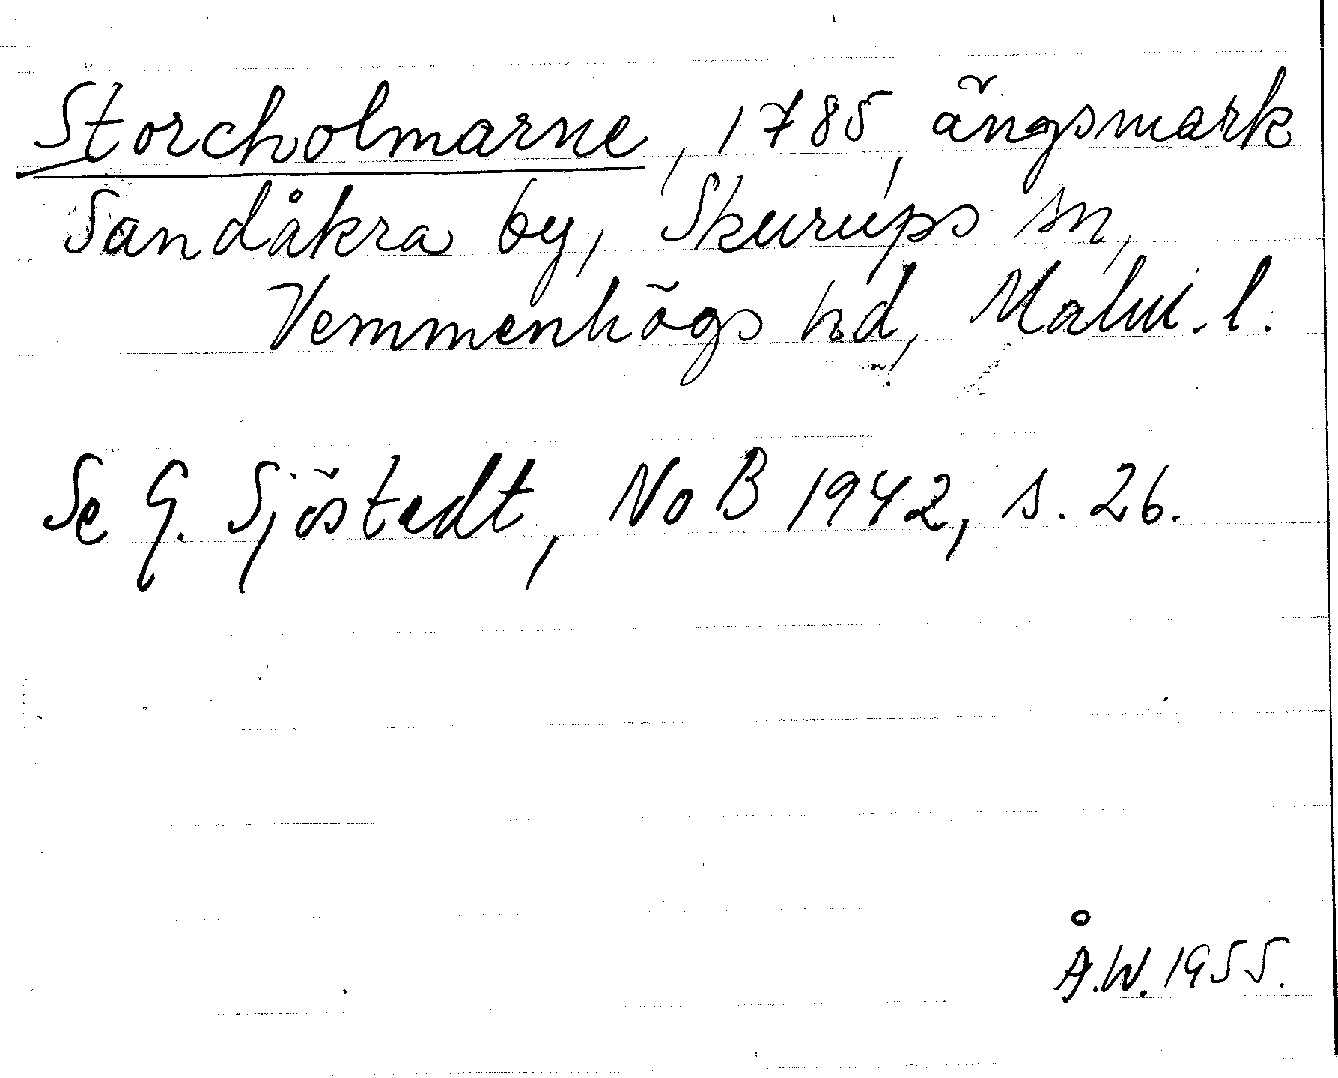 Storcholmarne, 1785, ängsmark
Sandåkra by, Skurups sn,
Vemmenhögs hd, Malm. l.
Se G. Sjöstedt, NoB 1942, s. 26.
Å.W. 1955.